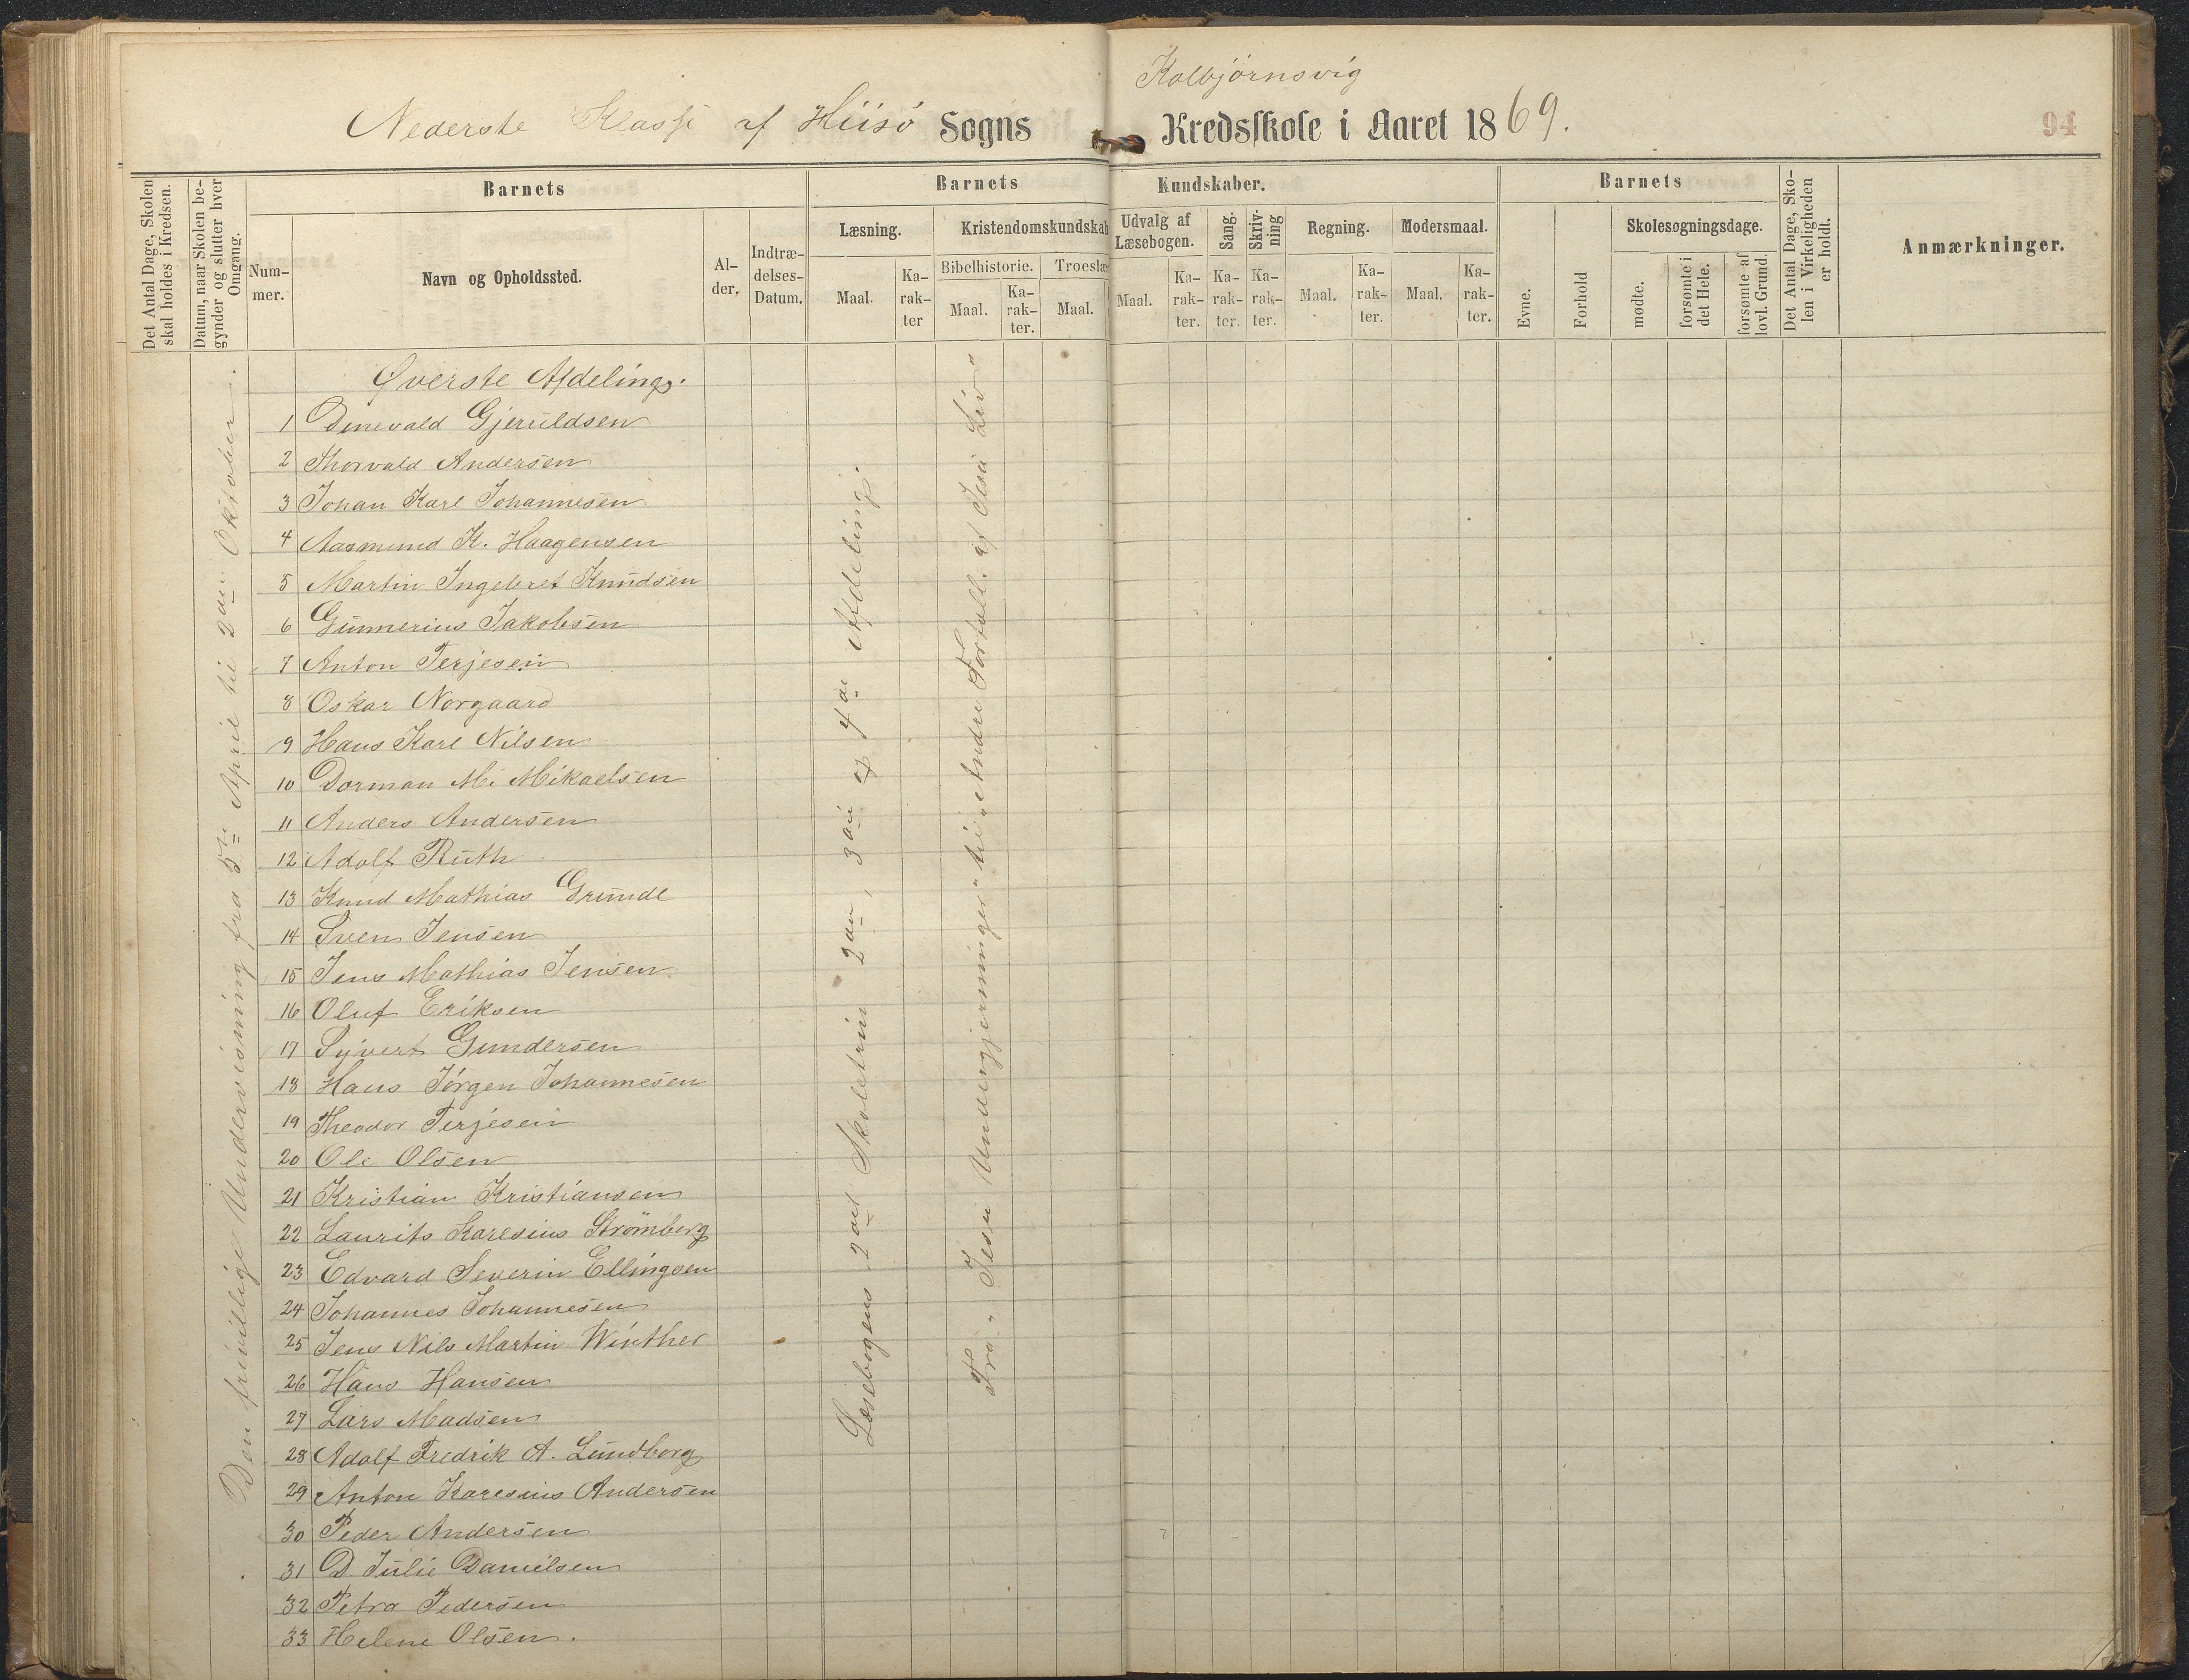 Kolbjörnsvig
Nederste Klasse af Hiisö Sogns Kredsskole i Aaret 1869.
94
Det Antal Dage, Skolen skal holdes i Kredsen.
Datum, naar Skolen begynder og slutter hver Omgang.
Barnets
Barnets Kundskaber.
Barnets
Det Antal Dage, Skolen i Virkeligheden er holdt.
Anmærkninger.
Nummer.
Navn og Opholdssted.
Alder.
Indtrædelses-Datum.
Læsning.
Kristendomskundskab
Udvalg af Læsebogen.
Sang.
Skrivning
Regning.
Modersmaal.
Evne.
Forhold
Skolesøgningsdage.
Bibelhistorie.
Troeslæ
Maal.
Karakter
Maal.
Karakter.
Maal.
Maal.
Karakter.
Karakter.
Karakter.
Maal.
Karakter.
Maal.
Karakter.
mødte.
forsømte i det Hele.
forsømte af lovl. Grund.
Øverste Afdeling.
1 Dinevald Gjeruldsen
2 Thorvald Andersen
3 Johan Karl Johannesen
4 Aasmund K. Haagensen
5 Martin Ingebret Knudsen
6 Gunnerius Jakobsen
7 Anton Terjesen
8 Oskar Norgaard
9 Hans Karl Nilsen
10 Dorman M. Mikaelsen
11 Anders Andersen
12 Adolf Ruth
13 Knud Mathias Grunde
14 Sven Jensen
15 Jens Mathias Jensen
16 Oluf Eriksen
17 Syvert Gundersen
18 Hans Jörgen Johannesen
19 Theodor Terjesen
20 Ole Olsen
21 Kristian Kristiansen
22 Laurits Karesius Strömberg
23 Edvard Severin Ellingsen
24 Johannes Johannesen
25 Jens Nils Martin Winther
26 Hans Hansen
27 Lars Madsen
28 Adolf Fredrik A. Lundborg
29 Anton Karesius Andersen
30 Peder Andersen
31 D. Julie Danielsen
32 Petra Pedersen
33 Helene Olsen.
Den frivillige Undervisning fra 5te April til 2den Oktober.
Læsebogens 2det Skoletrin 2den, 3die og 4de Afdeling.
Fra „Jesu Undergjerninger" til „Andre Fortæll. af Jesu Liv"